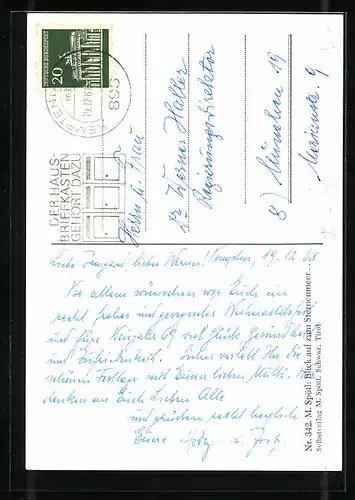 DEUTSCHE BUNDESPOST
20
KEMPTEN
896
DER HAUS-
BRIEFKASTEN
GEHÖRT DAZU
Herrn u. Frau
Dr. Werner Haller
Regierungsdirektor
8) München 19
9
Liebe Irmgard, lieber Werner! Kempten, 19.12.68
Vor allem wünschen wir Euch ein
recht frohes und gesundes Weihnachtsfest
und fürs Neujahr 69 viel Glück, Gesundheit
und Zufriedenheit. Sicher verlebt Ihr die
schönen Festtage mit Eurer lieben Mutti.
denken an Euch Lieben Alle
und grüssen recht herzlich
Eure u.
Nr. 342. M. Spötl: Blick auf zum Sternenmeer ...
Selbstverlag M. Spötl, Schwaz, Tirol